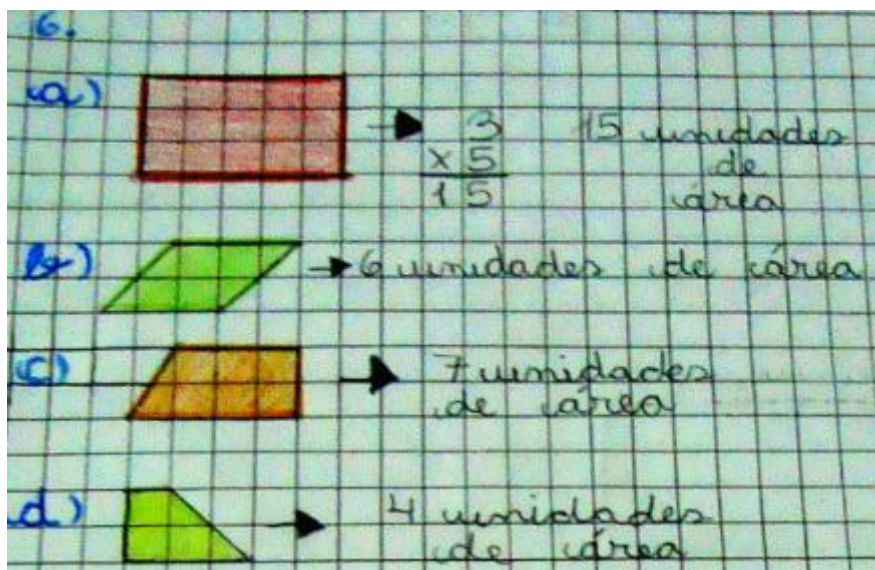 6.
a)
3
x 5
15
15 unidades
de
área
b) 6 unidades de área
c) 7 unidades
de área
d) 4 unidades
de área